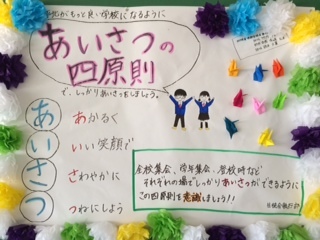 がもっと良い学校になるように
あいさつの
四原則
で、しっかりあいさつをしましょう。
あ あかるく
い いい笑顔で
さ さわやかに
つ つねにしよう
全校集会、学年集会、登校時など
それぞれの場でしっかりあいさつができるように
この四原則を意識しましょう!!